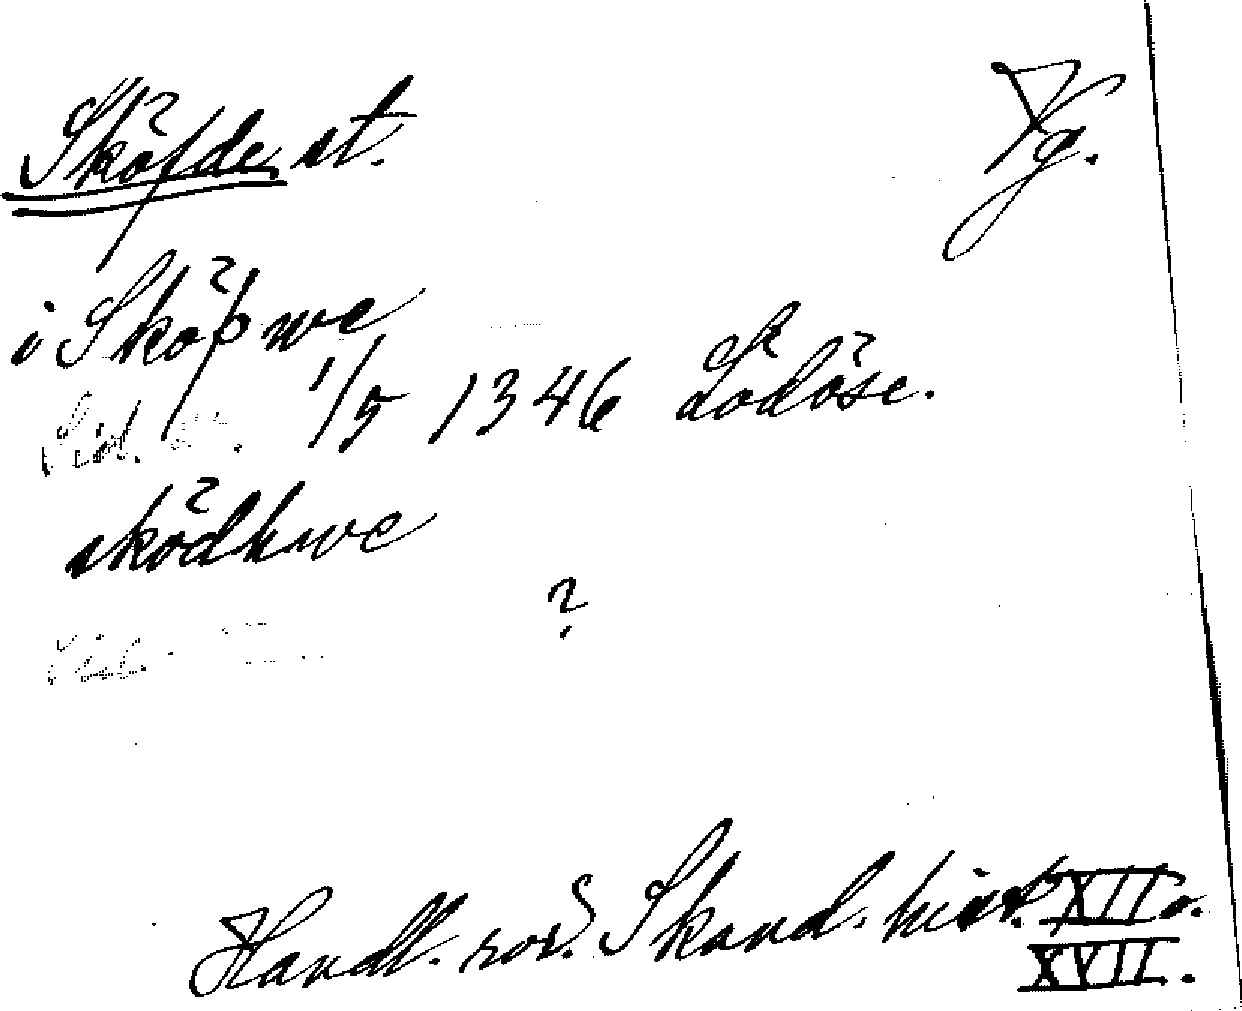 Sköfde st. Vg.
i Sköþwe
1/5 1346 Lödöse.
Sid.
sködhwe
?
Handl. rör. Skand. hist. XII o.
XVII.